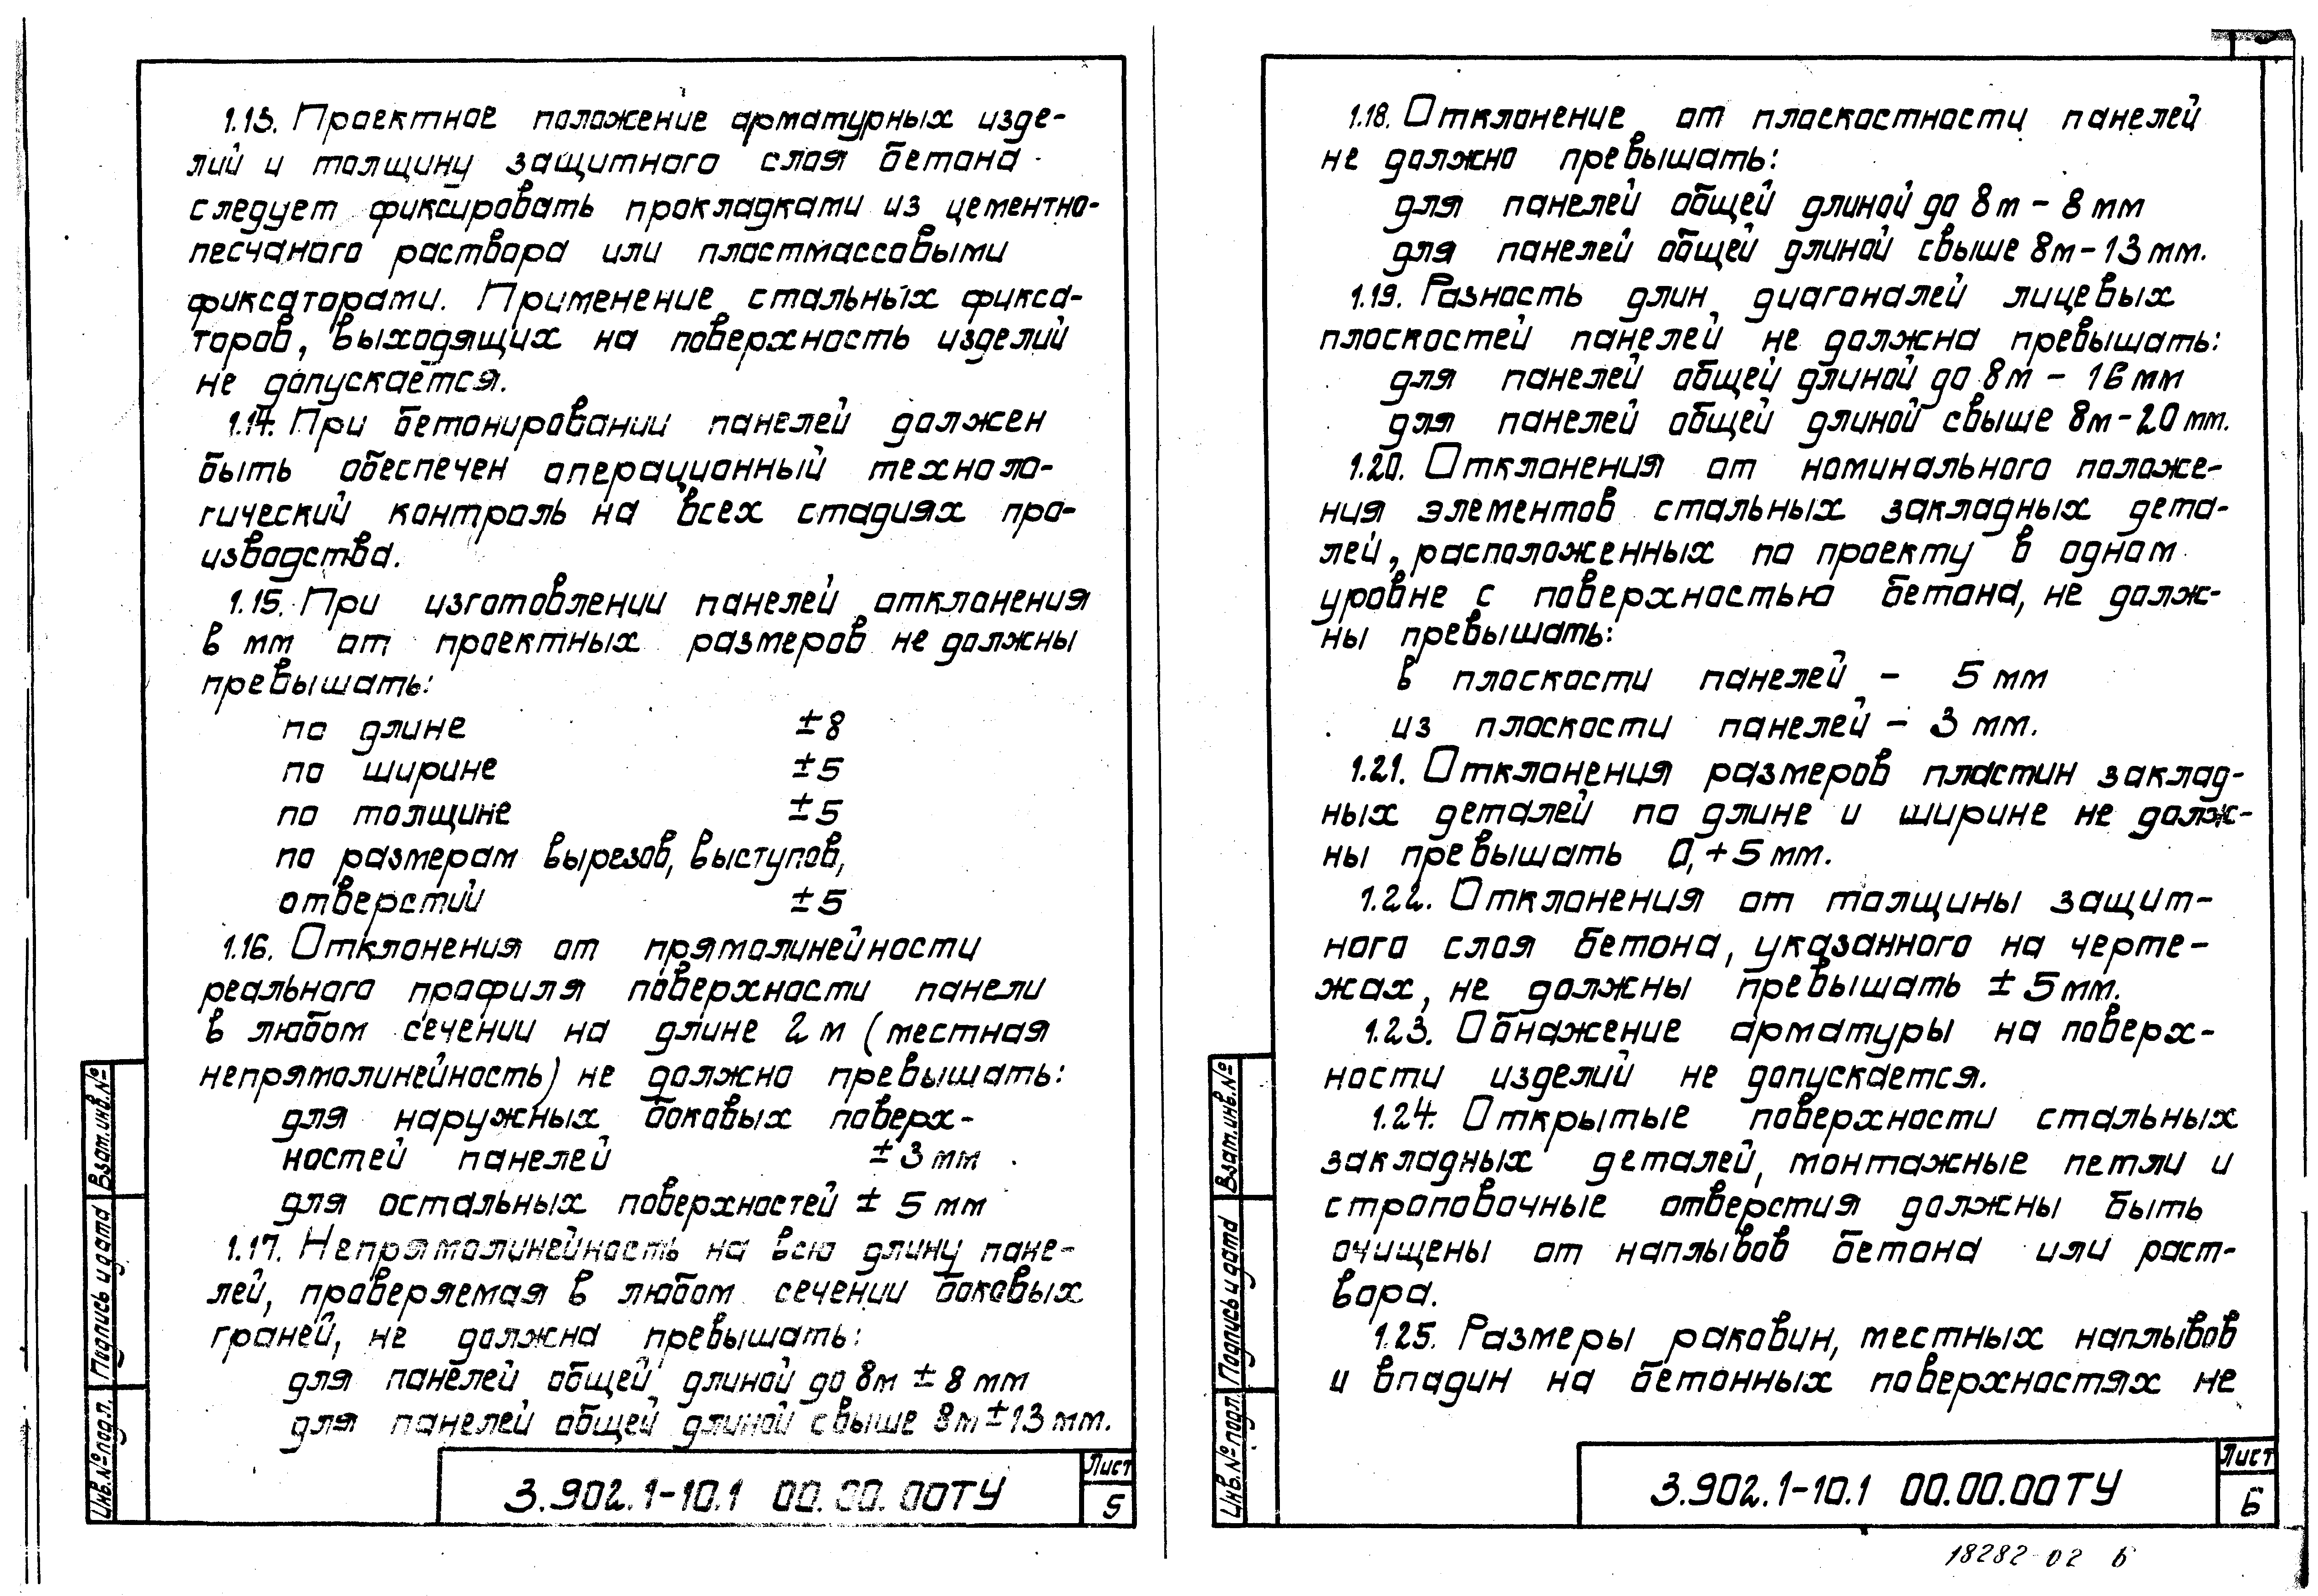 1.13. Проектное положение арматурных изде-
лий и толщину защитного слоя бетона
следует фиксировать прокладками из цементно-
песчаного раствора или пластмассовыми
фиксаторами. Применение стальных фикса-
торов, выходящих на поверхность изделий
не допускается.
1.14. При бетонировании панелей должен
быть обеспечен операционный техноло-
гический контроль на всех стадиях про-
изводства.
1.15. При изготовлении панелей отклонения
в мм от проектных размеров не должны
превышать:
по длине ±8
по ширине ±5
по толщине ±5
по размерам вырезов, выступов,
отверстий ±5
1.16. Отклонения от прямолинейности
реального профиля поверхности панели
в любом сечении на длине 2 м (местная
непрямолинейность) не должно превышать:
для наружных боковых поверх-
ностей панелей ±3 мм
для остальных поверхностей ± 5 мм
1.17. Непрямолинейность на всю длину пане-
лей, проверяемая в любом сечении боковых
граней, не должна превышать:
для панелей общей длиной до 8м ± 8 мм
для панелей общей длиной свыше 8м ±13 мм.
Взам.инв.№
Подпись и дата
Инв.№ подл.
3.902.1-10.1 00.00.00ТУ
Лист
5
1.18. Отклонение от плоскостности панелей
не должно превышать:
для панелей общей длиной до 8м - 8 мм
для панелей общей длиной свыше 8м - 13 мм.
1.19. Разность длин диагоналей лицевых
плоскостей панелей не должна превышать:
для панелей общей длиной до 8м - 16 мм
для панелей общей длиной свыше 8м - 20 мм.
1.20. Отклонения от номинального положе-
ния элементов стальных закладных дета-
лей, расположенных по проекту в одном
уровне с поверхностью бетона, не долж-
ны превышать:
в плоскости панелей - 5 мм
из плоскости панелей - 3 мм.
1.21. Отклонения размеров пластин заклад-
ных деталей по длине и ширине не долж-
ны превышать 0, +5 мм.
1.22. Отклонения от толщины защит-
ного слоя бетона, указанного на черте-
жах, не должны превышать ± 5 мм.
1.23. Обнажение арматуры на поверх-
ности изделий не допускается.
1.24. Открытые поверхности стальных
закладных деталей, монтажные петли и
строповочные отверстия должны быть
очищены от наплывов бетона или раст-
вора.
1.25. Размеры раковин, местных наплывов
и впадин на бетонных поверхностях не
Взам.инв.№
Подпись и дата
Инв.№ подл.
3.902.1-10.1 00.00.00ТУ
Лист
6
18282-02 6